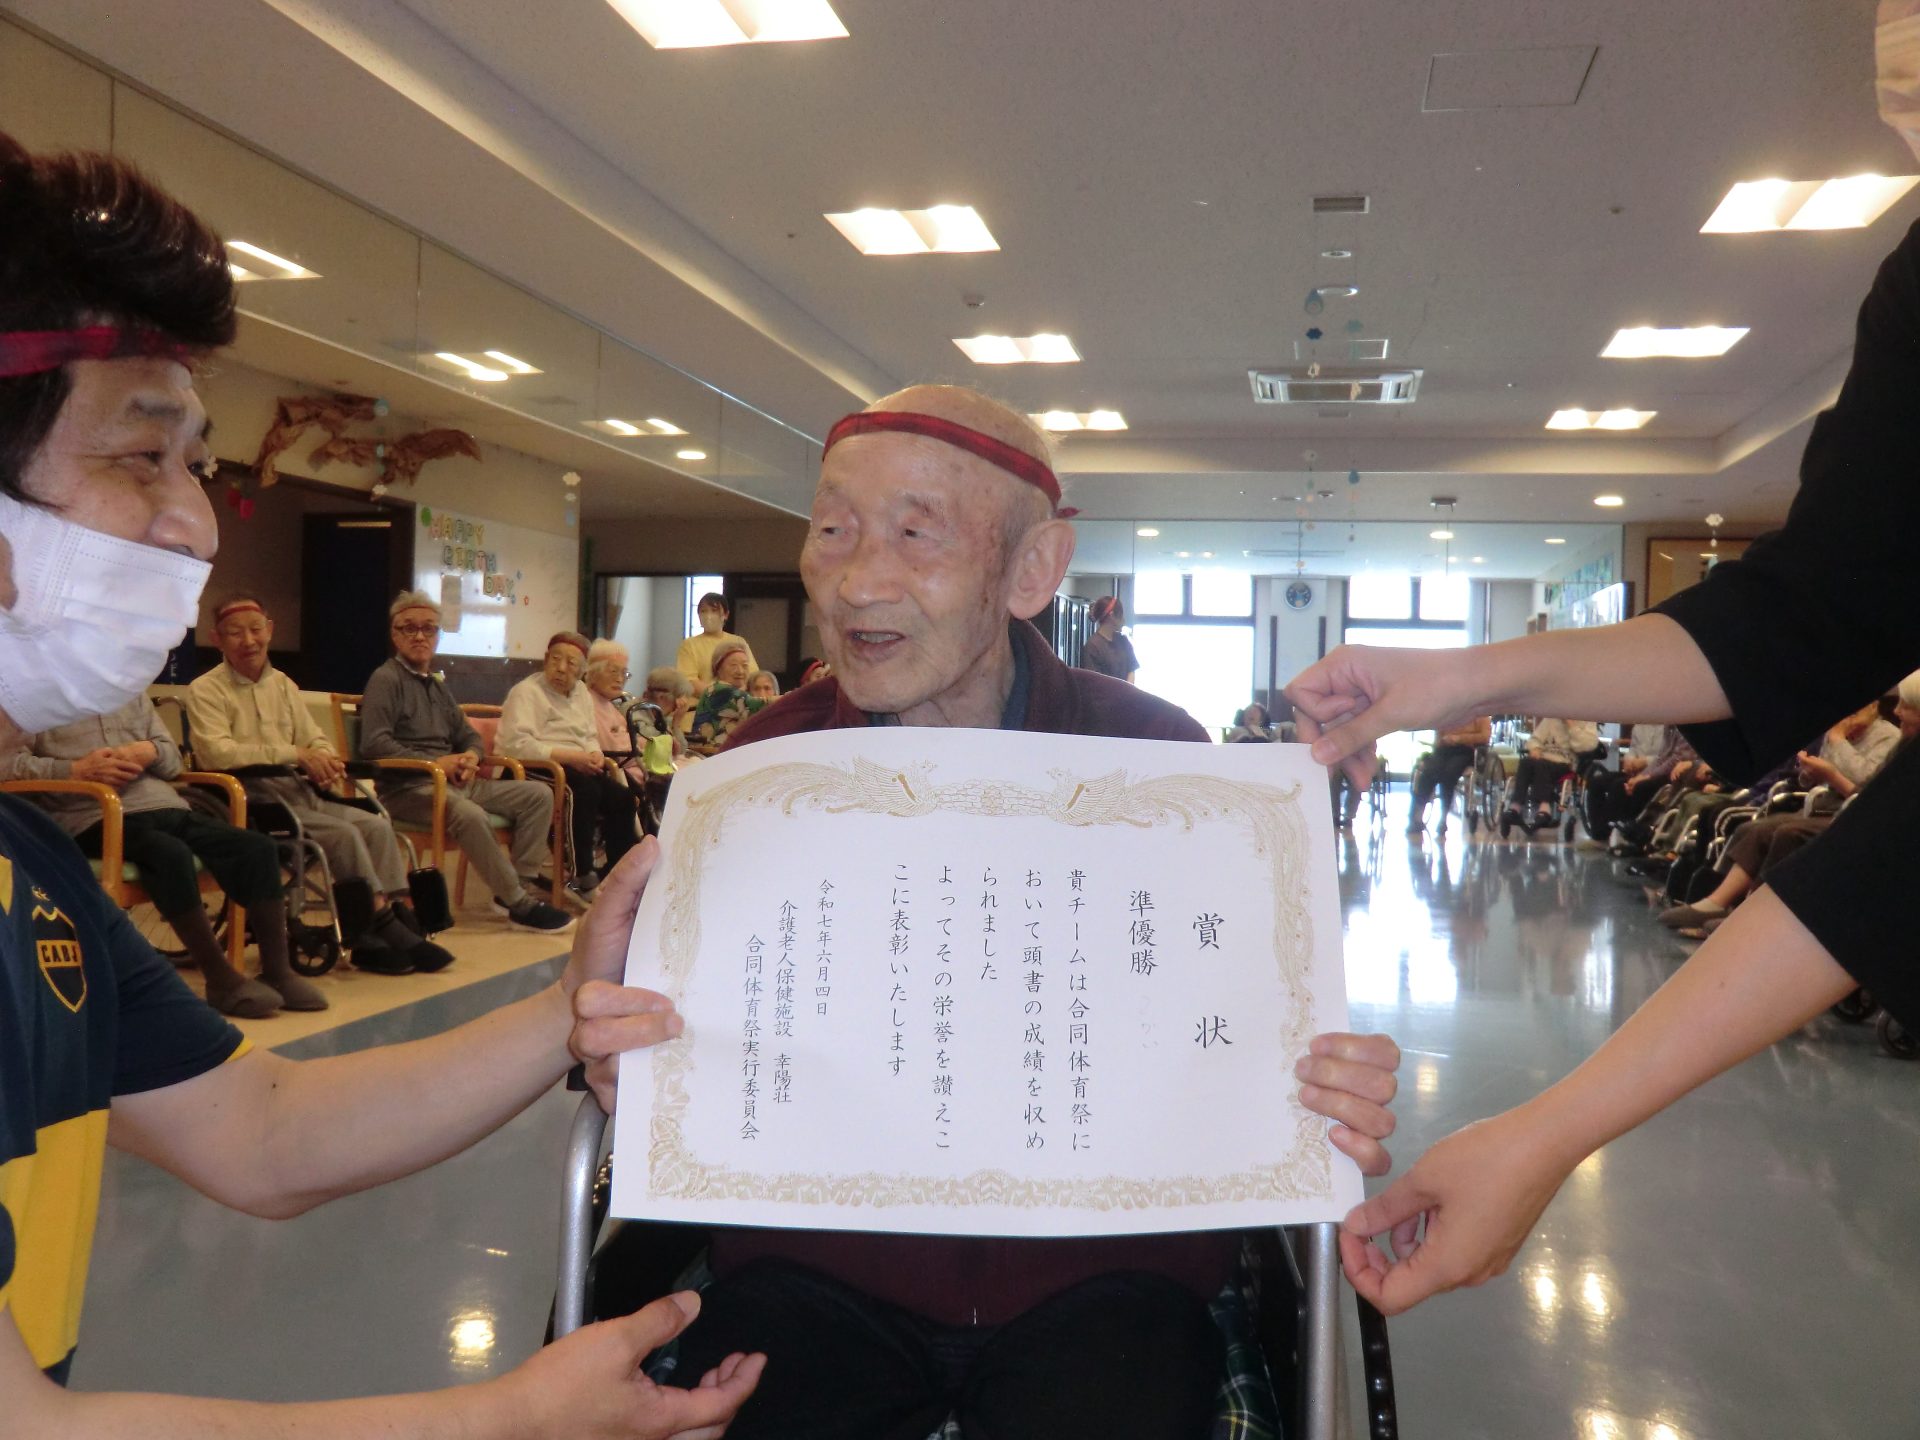 賞状
準優勝
貴チームは合同体育祭に
おいて頭書の成績を収め
られました
よってその栄誉を讃えこ
こに表彰いたします
令和七年六月四日
介護老人保健施設 幸陽荘
合同体育祭実行委員会
HAPPY
BIRTH
DAY
CABJ